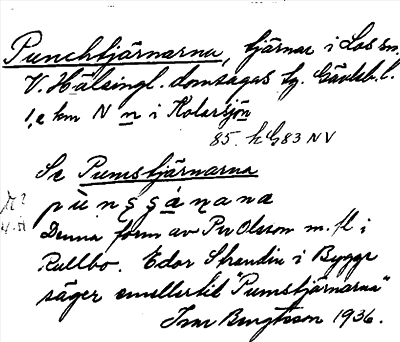 Punchtjärnarna, tjärnar i Los sn,
V. Hälsingl. domsagas tg. Gävleb. l.
1,2 km N n i Kolarsjön
85. h G83 NV
Se Pumstjärnarna
Denna form av Per Olsson m. fl i
Rullbo. Edor Strandin i Bygge
säger emellertid "Pumstjärnarna"
Bengtsson 1936.